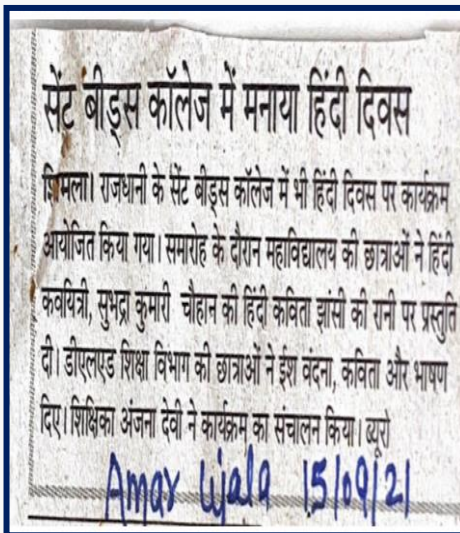 सेंट बीड्स कॉलेज में मनाया हिंदी दिवस
शिमला। राजधानी के सेंट बीड्स कॉलेज में भी हिंदी दिवस पर कार्यक्रम
आयोजित किया गया। समारोह के दौरान महाविद्यालय की छात्राओं ने हिंदी
कवयित्री, सुभद्रा कुमारी चौहान की हिंदी कविता झांसी की रानी पर प्रस्तुति
दी। डीएलएड शिक्षा विभाग की छात्राओं ने ईश वंदना, कविता और भाषण
दिए। शिक्षिका अंजना देवी ने कार्यक्रम का संचालन किया। ब्यूरो
Amar Ujala 15/09/21